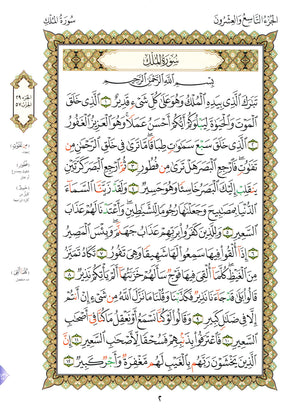 الجزء التاسع والعشرون
سورة الملك
الجزء ٢٩
الحزب ٥٧
سورة الملك
بسم الله الرحمن الرحيم
تبرك الذي بيده الملك وهو على كل شيء قدير ١ الذي خلق
الموت والحيوة ليبلوكم أيكم أحسن عملا وهو العزيز الغفور
٢ الذي خلق سبع سموات طباقا ما ترى في خلق الرحمن من
تفوت فارجع البصر هل ترى من فطور ٣ ثم ارجع البصر كرتين
ينقلب إليك البصر خاسئا وهو حسير ٤ ولقد زينا السماء
الدنيا بمصبيح وجعلنها رجوما للشيطين وأعتدنا لهم عذاب
السعير ٥ وللذين كفروا بربهم عذاب جهنم وبئس المصير
٦ إذا ألقوا فيها سمعوا لها شهيقا وهي تفور ٧ تكاد تميز
من الغيظ كلما ألقي فيها فوج سألهم خزنتها ألم يأتكم نذير ٨
قالوا بلى قد جاءنا نذير فكذبنا وقلنا ما نزل الله من شيء إن أنتم
إلا في ضلل كبير ٩ وقالوا لو كنا نسمع أو نعقل ما كنا في أصحب
السعير ١٠ فاعترفوا بذنبهم فسحقا لأصحب السعير ١١ إن
الذين يخشون ربهم بالغيب لهم مغفرة وأجر كبير ١٢
٢